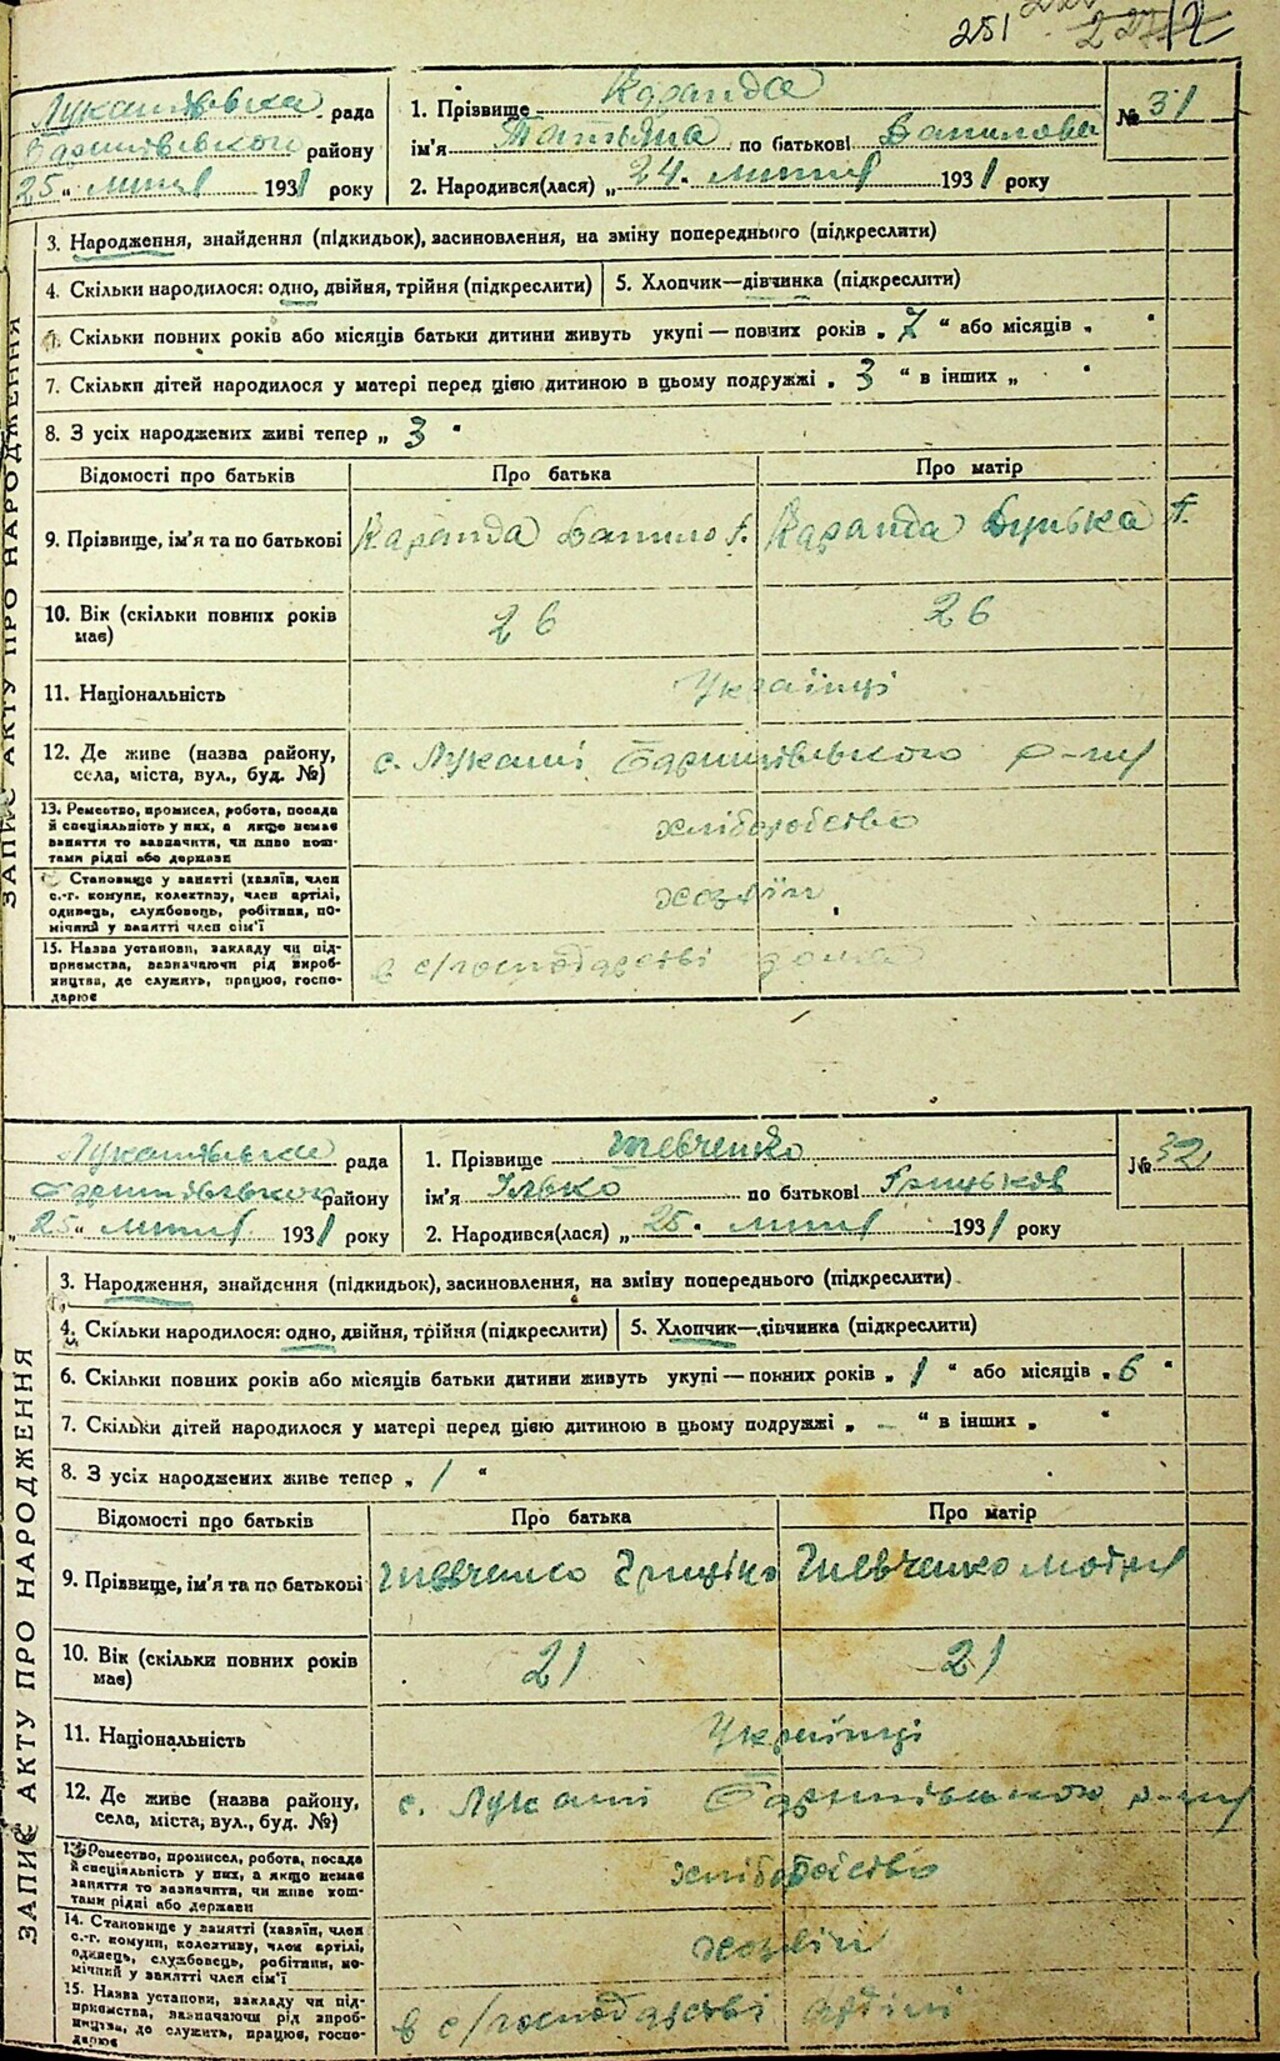 251
Лукашівська рада
Баришівського району
25 „ липня 1931 року
1. Прізвище Каранда
ім'я Татьяна по батькові Данилова
2. Народився(лася) „ 24 " липня 1931 року
№ 31
ЗАПИС АКТУ ПРО НАРОДЖЕННЯ
3. Народження, знайдення (підкидьок), засиновлення, на зміну попереднього (підкреслити)
4. Скільки народилося: одно, двійня, трійня (підкреслити) 5. Хлопчик—дівчинка (підкреслити)
Скільки повних років або місяців батьки дитини живуть укупі — повних років „ 7 “ або місяців „ "
7. Скільки дітей народилося у матері перед цією дитиною в цьому подружжі „ 3 “ в інших „ "
8. З усіх народжених живі тепер „ 3 "
Відомості про батьків Про батька Про матір
9. Прізвище, ім'я та по батькові Каранда Данило Г. Каранда Дунька Т.
10. Вік (скільки повних років
має) 26 26
11. Національність Українці
12. Де живе (назва району,
села, міста, вул., буд. №) с. Лукаші Баришівського р-ну
13. Ремество, промисел, робота, посада
й спеціяльність у них, а якщо немає
заняття то зазначити, чи живе кош-
тами рідні або держави хліборобство
Становище у занятті (хазяїн, член
с.-г. комуни, колективу, член артілі,
одинець, службовець, робітник, по-
мічний у занятті член сім'ї хозяїн
15. Назва установи, закладу чи під-
приємства, зазначаючи рід вироб-
ництва, де служить, працює, госпо-
дарює в с/господарстві дома
Лукашівська рада
Баришівського району
„ 25 “ липня 1931 року
1. Прізвище Шевченко
ім'я Ілько по батькові Грицьков
2. Народився(лася) „ 25 " липня 1931 року
№ 32
ЗАПИС АКТУ ПРО НАРОДЖЕННЯ
3. Народження, знайдення (підкидьок), засиновлення, на зміну попереднього (підкреслити)
4. Скільки народилося: одно, двійня, трійня (підкреслити) 5. Хлопчик—дівчинка (підкреслити)
6. Скільки повних років або місяців батьки дитини живуть укупі — повних років „ 1 “ або місяців „ 6 "
7. Скільки дітей народилося у матері перед цією дитиною в цьому подружжі „ – “ в інших „ “
8. З усіх народжених живе тепер „ 1 “
Відомості про батьків Про батька Про матір
9. Прізвище, ім'я та по батькові Шевченко Грицько Шевченко Мотря
10. Вік (скільки повних років
має) 21 21
11. Національність Українці
12. Де живе (назва району,
села, міста, вул., буд. №) с. Лукаші Баришівського р-ну
13. Ремество, промисел, робота, посада
й спеціяльність у них, а якщо немає
заняття то зазначити, чи живе кош-
тами рідні або держави
14. Становище у занятті (хазяїн, член
с.-г. комуни, колективу, член артілі,
одинець, службовець, робітник, по-
мічний у занятті член сім'ї хозяїн
15. Назва установи, закладу чи під-
приємства, зазначаючи рід вироб-
ництва, де служить, працює, госпо-
дарює в с/господарстві артілі